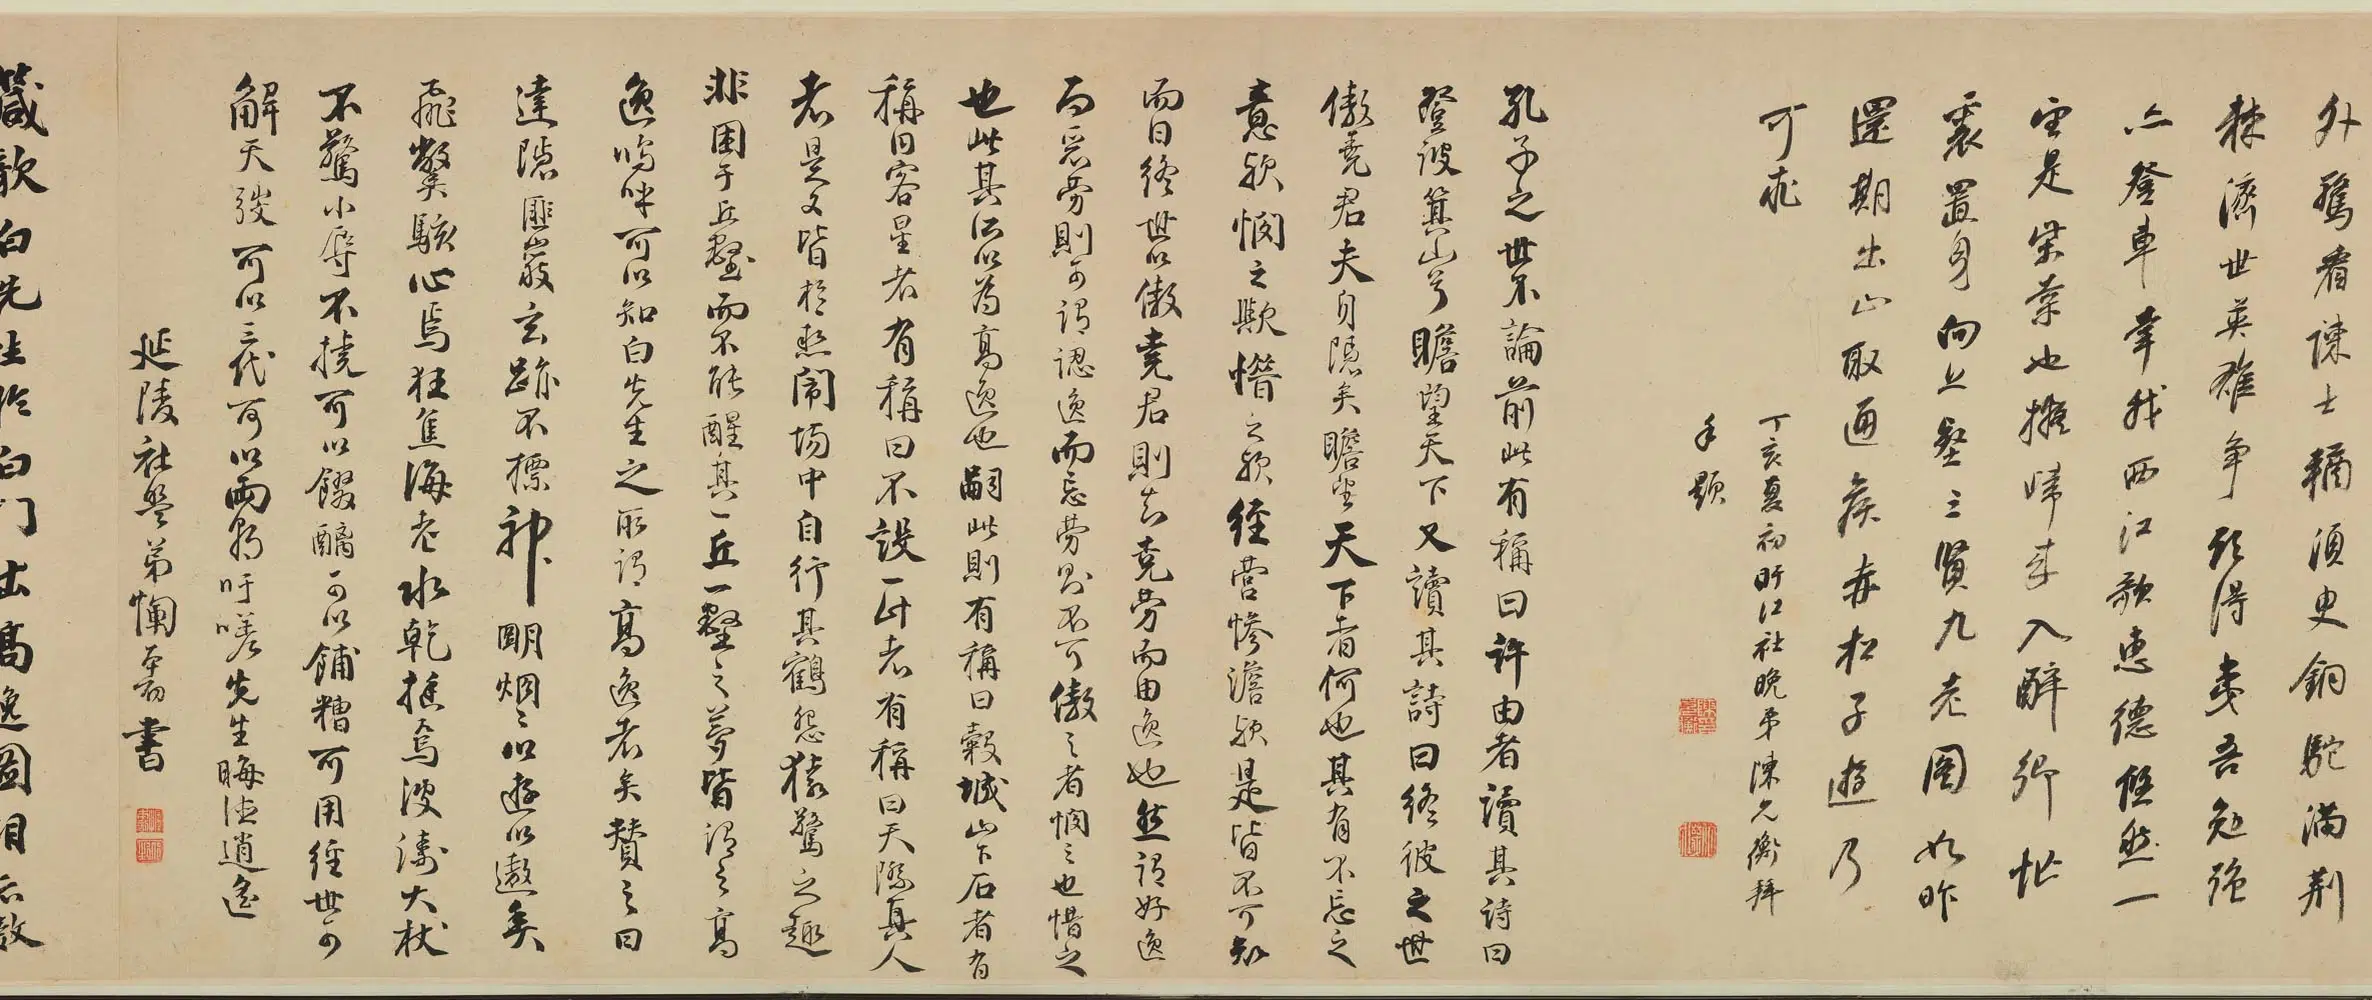 外驚看諫士稿須臾銅駝滿荊
棘濟世英雄爭欲得叟吾勉強
亦登車幸我西江歌惠德恆然一
望是柴桑也擬歸來入醉鄉忙
裹置身向丘壑三賢九老圖如昨
還期出山取通侯赤松子遊乃
可
丁亥夏初盱江社晚弟陳允衡拜
手題
孔子之世不論前此有稱曰許由者讀其詩曰
登彼箕山兮瞻望天下又讀其詩曰終彼之世
傲堯君夫身隱矣瞻望天下者何也其有不忘之
意歟憫之歟惜之歟經營慘澹歟是皆不可知
而曰終世以傲堯君則知堯勞而由逸也然謂好逸
而惡勞則可謂認逸而忘勞則不可傲之者憫之也惜之
也此其所以為高逸也嗣此則有稱曰穀城山下石者有
稱曰客星者有稱曰不設一計者有稱曰天際真人
者是又皆於熱鬧場中自行其鶴怨猿驚之趣
非困于丘壑而不能醒其一丘一壑之夢皆謂之高
逸嗚呼可以知白先生之所謂高逸者矣贊之曰
達隱匪巖玄跡不標神嘂烟烟以遊以遨矣
飛獘駭心焉狂焦海老水乾挺焉波濤大杖
不驚小辱不撓可以餟醨可以餔糟可用經世可
解天弢可以三代可以兩朝吁嗟先生晦德逍遙
延陵社盟弟惆書
箴歌白先生於白門出高逸圖相示敬